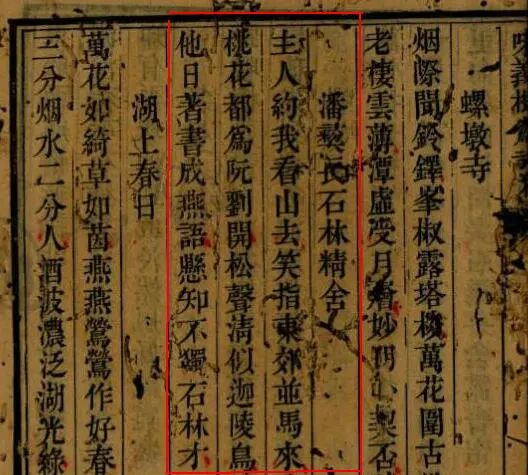 螺墩寺
烟際聞鈴鐸峯椒露塔稜萬花圍古
老棲雲薄潭虛受月
潘
氏石林精舍
主人約我看山去笑指東郊並馬來
桃花都為阮劉開松聲清似迦陵鳥
他日著書成燕語懸知不獨石林才
湖上春日
萬花如綺草如茵燕燕鶯鶯作好春
三分烟水二分人酒波濃泛湖光綠